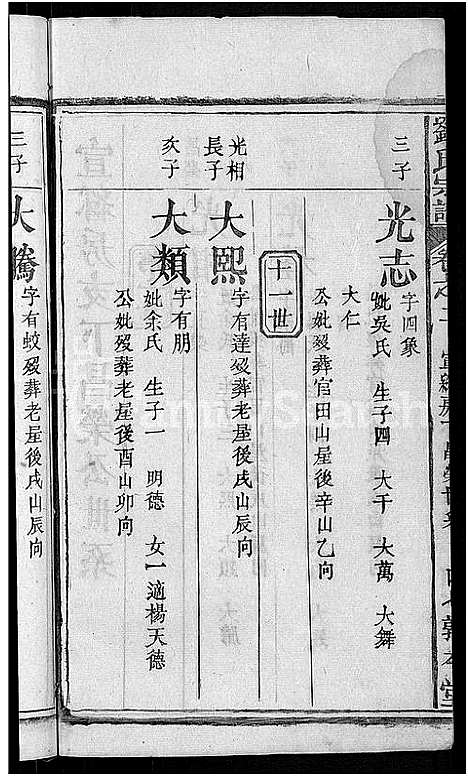 劉氏宗譜
三子
光志
字四象
妣吳氏 生子四 大千 大萬 大舞
大仁
公妣歿葬官田山屋後辛山乙向
十一世
光相
長子
大熙
字有達歿葬老屋後戌山辰向
次子
大類
字有朋
妣余氏 生子一 明德 女一適楊天德
公妣歿葬老屋後酉山卯向
三子
大騰
字有蛟歿葬老屋後戌山辰向